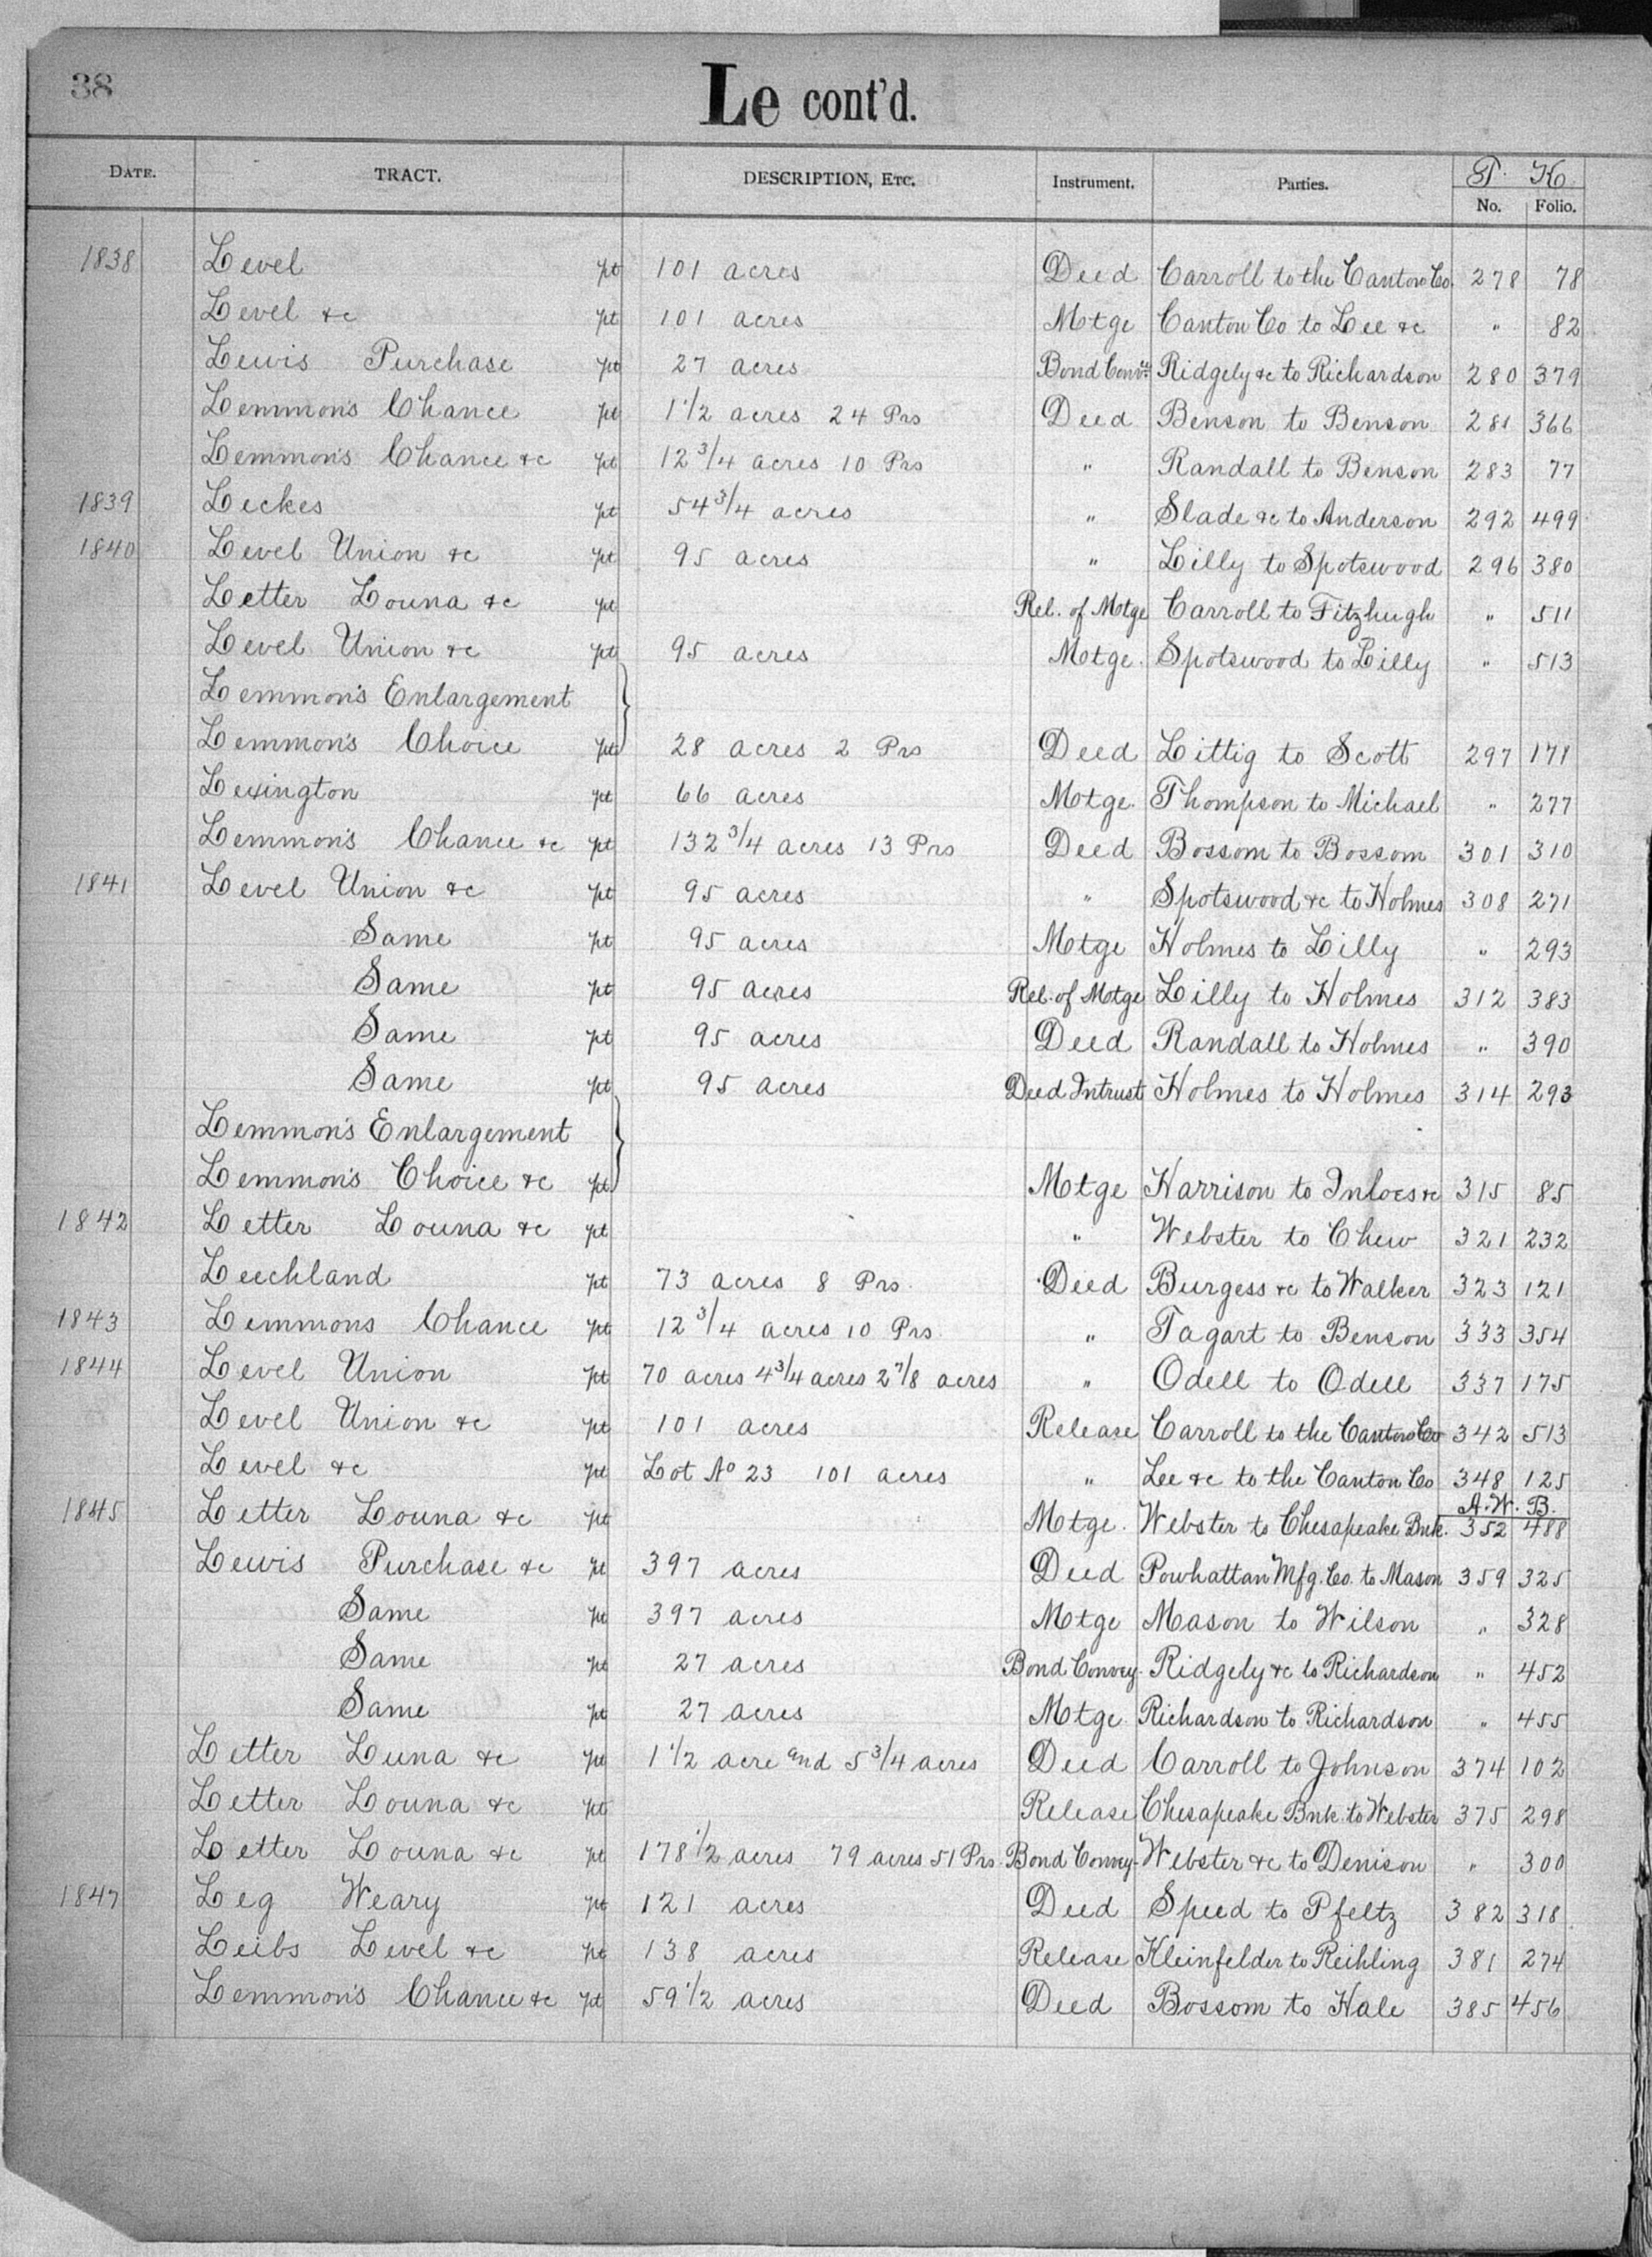 38
Le cont'd.
DATE. TRACT. DESCRIPTION, ETC. Instrument. Parties. T. K.
No. Folio.
1838 Level pt 101 acres Deed Carroll to the Canton Co. 278 78
Level &c pt 101 acres Motge Canton Co to Lee &c " 82
Lewis Purchase pt 27 acres Bond Convce Ridgely &c to Richardson 280 379
Lemmon's Chance pt 1 1/2 acres 24 Prs Deed Benson to Benson 281 366
Lemmon's Chance &c pt 12 3/4 acres 10 Prs " Randall to Benson 283 77
1839 Leckes pt 54 3/4 acres " Slade &c to Anderson 292 499
1840 Level Union &c pt 95 acres " Lilly to Spotswood 296 380
Letter Louna &c pt Rel. of Motge Carroll to Fitzhugh " 511
Level Union &c pt 95 acres Motge. Spotswood to Lilly " 513
Lemmon's Enlargement
Lemmon's Choice pt 28 acres 2 Prs Deed Littig to Scott 297 171
Lexington pt 66 acres Motge. Thompson to Michael " 277
Lemmon's Chance &c pt 132 3/4 acres 13 Prs Deed Bossom to Bossom 301 310
1841 Level Union &c pt 95 acres " Spotswood &c to Holmes 308 271
Same pt 95 acres Motge Holmes to Lilly " 293
Same pt 95 acres Rel. of Motge Lilly to Holmes 312 383
Same pt 95 acres Deed Randall to Holmes " 390
Same pt 95 acres Deed Intrust Holmes to Holmes 314 293
Lemmon's Enlargement
Lemmon's Choice &c pt Motge Harrison to Inloes &c 315 85
1842 Letter Louna &c pt " Webster to Chew 321 232
Leechland pt 73 acres 8 Prs. Deed Burgess &c to Walker 323 121
1843 Lemmons Chance pt 12 3/4 acres 10 Prs. " Tagart to Benson 333 354
1844 Level Union pt 70 acres 4 3/4 acres 2 7/8 acres " Odell to Odell 337 175
Level Union &c pt 101 acres Release Carroll to the Canton Co 342 513
Level &c pt Lot No 23 101 acres " Lee &c to the Canton Co 348 125
A. W. B.
1845 Letter Louna &c pt Motge. Webster to Chesapeake Bnk. 352 488
Lewis Purchase &c pt 397 acres Deed Powhattan Mfg. Co. to Mason 359 325
Same pt 397 acres Motge Mason to Wilson " 328
Same pt 27 acres Bond Convey. Ridgely &c to Richardson " 452
Same pt 27 acres Motge Richardson to Richardson " 455
Letter Luna &c pt 1 1/2 acre and 5 3/4 acres Deed Carroll to Johnson 374 102
Letter Louna &c pt Release Chesapeake Bnk. to Webster 375 298
Letter Louna &c pt 178 1/2 acres 79 acres 51 Prs. Bond Convey. Webster &c to Denison " 300
1847 Leg Weary pt 121 acres Deed Speed to Pfeltz 382 318
Leibs Level &c pt 138 acres Release Kleinfelder to Reihling 381 274
Lemmon's Chance &c pt 59 1/2 acres Deed Bossom to Hale 385 456